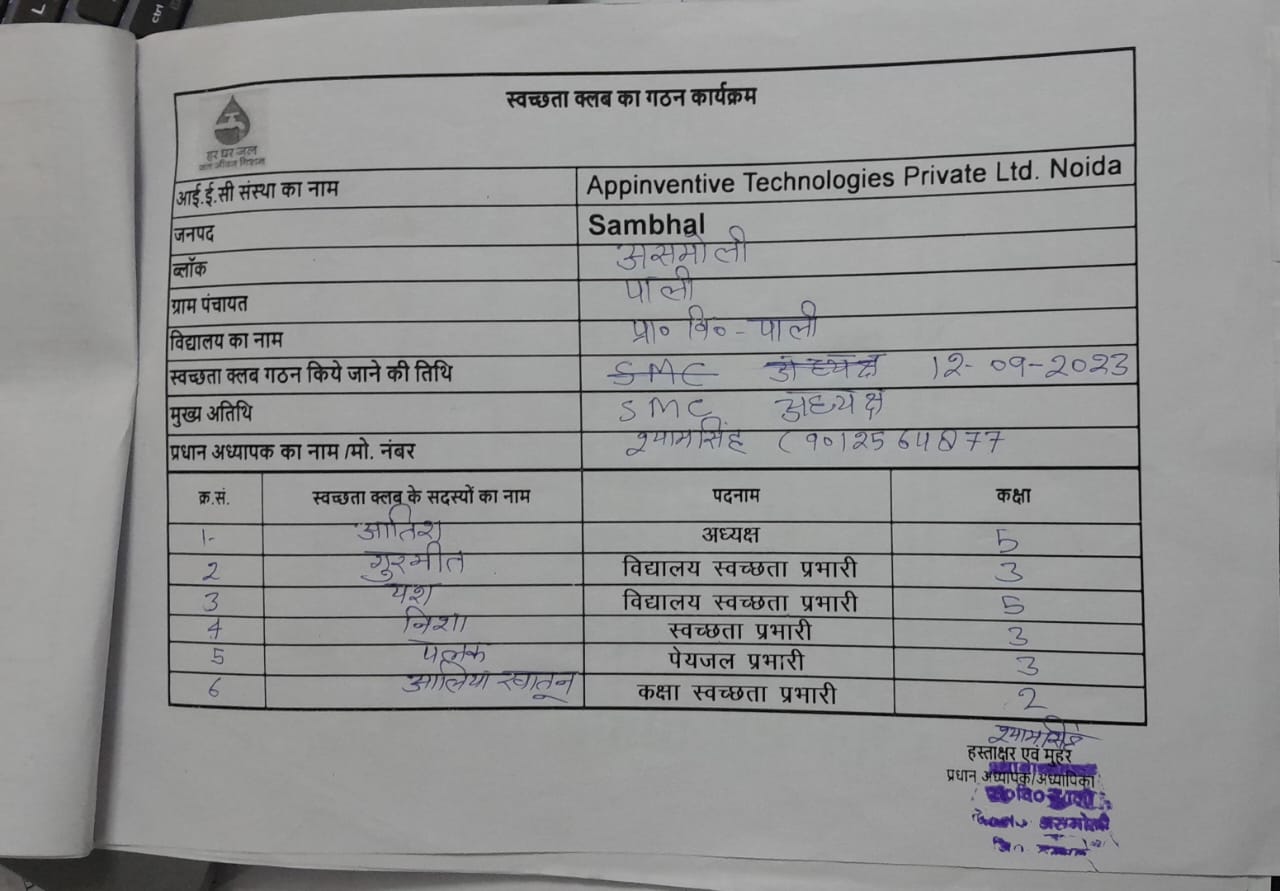 स्वच्छता क्लब का गठन कार्यक्रम
हर घर जल
जल जीवन मिशन
आई.ई.सी संस्था का नाम Appinventive Technologies Private Ltd. Noida
जनपद Sambhal
ब्लॉक असमोली
ग्राम पंचायत पाली
विद्यालय का नाम प्रा० वि० - पाली
स्वच्छता क्लब गठन किये जाने की तिथि SMC अध्यक्ष 12-09-2023
मुख्य अतिथि SMC अध्यक्ष
प्रधान अध्यापक का नाम /मो. नंबर श्यामसिंह
क्र.सं. स्वच्छता क्लब के सदस्यों का नाम पदनाम कक्षा
1- आतिश अध्यक्ष 5
2 गुरमीत विद्यालय स्वच्छता प्रभारी 3
3 यश विद्यालय स्वच्छता प्रभारी 5
4 निशा स्वच्छता प्रभारी 3
5 पलक पेयजल प्रभारी 3
6 आलिया खातून कक्षा स्वच्छता प्रभारी 2
श्यामसिंह
हस्ताक्षर एवं मुहर
प्रधान अध्यापक/अध्यापिका
वि०
असमोली